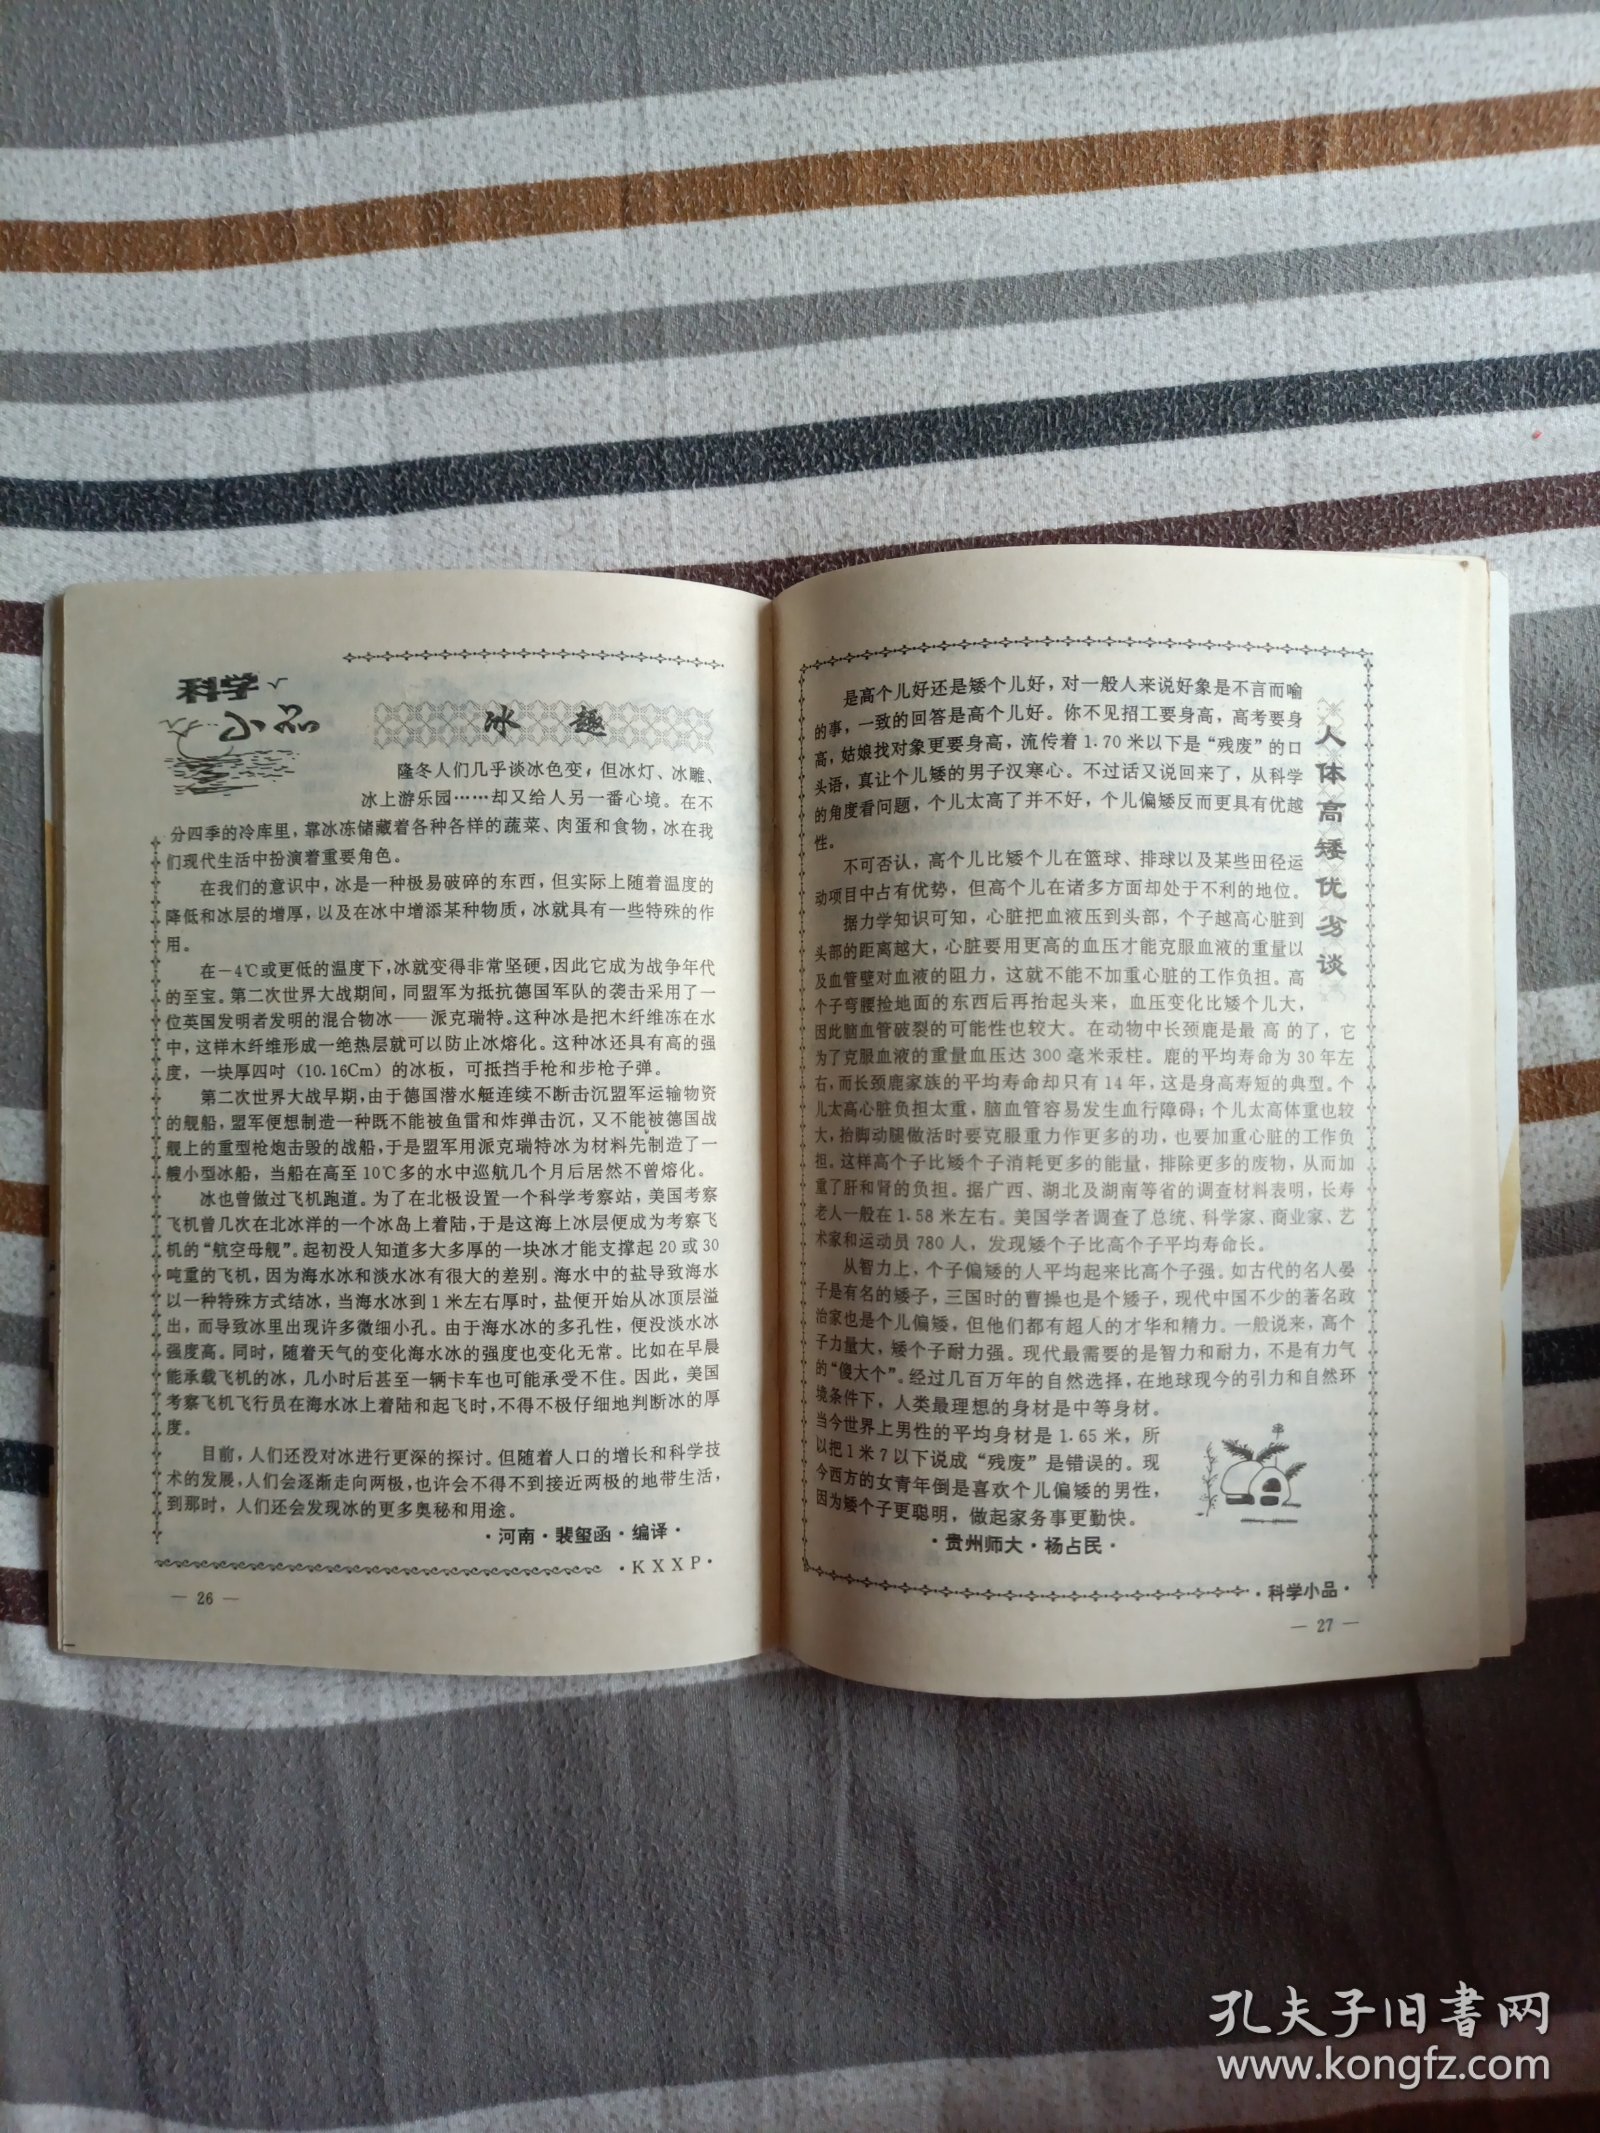 科学
小品
冰 趣
隆冬人们几乎谈冰色变，但冰灯、冰雕、
冰上游乐园……却又给人另一番心境。在不
分四季的冷库里，靠冰冻储藏着各种各样的蔬菜、肉蛋和食物，冰在我
们现代生活中扮演着重要角色。
在我们的意识中，冰是一种极易破碎的东西，但实际上随着温度的
降低和冰层的增厚，以及在冰中增添某种物质，冰就具有一些特殊的作
用。
在—4℃或更低的温度下，冰就变得非常坚硬，因此它成为战争年代
的至宝。第二次世界大战期间，同盟军为抵抗德国军队的袭击采用了一
位英国发明者发明的混合物冰——派克瑞特。这种冰是把木纤维冻在水
中，这样木纤维形成一绝热层就可以防止冰熔化。这种冰还具有高的强
度，一块厚四吋（10.16Cm）的冰板，可抵挡手枪和步枪子弹。
第二次世界大战早期，由于德国潜水艇连续不断击沉盟军运输物资
的舰船，盟军便想制造一种既不能被鱼雷和炸弹击沉，又不能被德国战
舰上的重型枪炮击毁的战船，于是盟军用派克瑞特冰为材料先制造了一
艘小型冰船，当船在高至10℃多的水中巡航几个月后居然不曾熔化。
冰也曾做过飞机跑道。为了在北极设置一个科学考察站，美国考察
飞机曾几次在北冰洋的一个冰岛上着陆，于是这海上冰层便成为考察飞
机的“航空母舰”。起初没人知道多大多厚的一块冰才能支撑起20或30
吨重的飞机，因为海水冰和淡水冰有很大的差别。海水中的盐导致海水
以一种特殊方式结冰，当海水冰到1米左右厚时，盐便开始从冰顶层溢
出，而导致冰里出现许多微细小孔。由于海水冰的多孔性，便没淡水冰
强度高。同时，随着天气的变化海水冰的强度也变化无常。比如在早晨
能承载飞机的冰，几小时后甚至一辆卡车也可能承受不住。因此，美国
考察飞机飞行员在海水冰上着陆和起飞时，不得不极仔细地判断冰的厚
度。
目前，人们还没对冰进行更深的探讨。但随着人口的增长和科学技
术的发展，人们会逐渐走向两极，也许会不得不到接近两极的地带生活，
到那时，人们还会发现冰的更多奥秘和用途。
·河南·裴玺函·编译·
·KXXP·
— 26 —
人体高矮优劣谈
是高个儿好还是矮个儿好，对一般人来说好象是不言而喻
的事，一致的回答是高个儿好。你不见招工要身高，高考要身
高，姑娘找对象更要身高，流传着1.70米以下是“残废”的口
头语，真让个儿矮的男子汉寒心。不过话又说回来了，从科学
的角度看问题，个儿太高了并不好，个儿偏矮反而更具有优越
性。
不可否认，高个儿比矮个儿在篮球、排球以及某些田径运
动项目中占有优势，但高个儿在诸多方面却处于不利的地位。
据力学知识可知，心脏把血液压到头部，个子越高心脏到
头部的距离越大，心脏要用更高的血压才能克服血液的重量以
及血管壁对血液的阻力，这就不能不加重心脏的工作负担。高
个子弯腰捡地面的东西后再抬起头来，血压变化比矮个儿大，
因此脑血管破裂的可能性也较大。在动物中长颈鹿是最高的了，它
为了克服血液的重量血压达300毫米汞柱。鹿的平均寿命为30年左
右，而长颈鹿家族的平均寿命却只有14年，这是身高寿短的典型。个
儿太高心脏负担太重，脑血管容易发生血行障碍；个儿太高体重也较
大，抬脚动腿做活时要克服重力作更多的功，也要加重心脏的工作负
担。这样高个子比矮个子消耗更多的能量，排除更多的废物，从而加
重了肝和肾的负担。据广西、湖北及湖南等省的调查材料表明，长寿
老人一般在1.58米左右。美国学者调查了总统、科学家、商业家、艺
术家和运动员780人，发现矮个子比高个子平均寿命长。
从智力上，个子偏矮的人平均起来比高个子强。如古代的名人晏
子是有名的矮子，三国时的曹操也是个矮子，现代中国不少的著名政
治家也是个儿偏矮，但他们都有超人的才华和精力。一般说来，高个
子力量大，矮个子耐力强。现代最需要的是智力和耐力，不是有力气
的“傻大个”。经过几百万年的自然选择，在地球现今的引力和自然环
境条件下，人类最理想的身材是中等身材。
当今世界上男性的平均身材是1.65米，所
以把1米7以下说成“残废”是错误的。现
今西方的女青年倒是喜欢个儿偏矮的男性，
因为矮个子更聪明，做起家务事更勤快。
·贵州师大·杨占民·
·科学小品·
— 27 —
孔夫子旧书网
www.kongfz.com